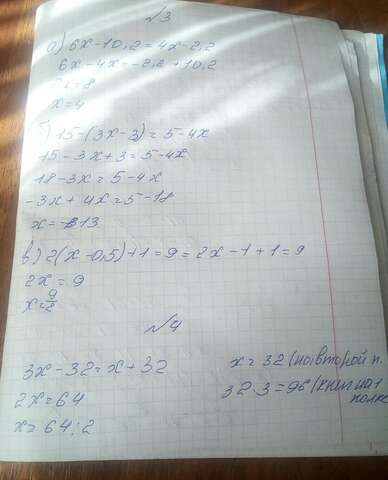 №3
а) 6x-10,2=4x-2,2
6x-4x=-2,2+10,2
2x=8
x=4
б) 15-(3x-3)=5-4x
15-3x+3=5-4x
18-3x=5-4x
-3x+4x=5-18
x=-13
в) 2(x-0,5)+1=9=2x-1+1=9
2x=9
x=9/2
№4
3x-32=x+32
2x=64
x=64:2
x=32 (на второй п.
32·3=96 (книг на 1
полке